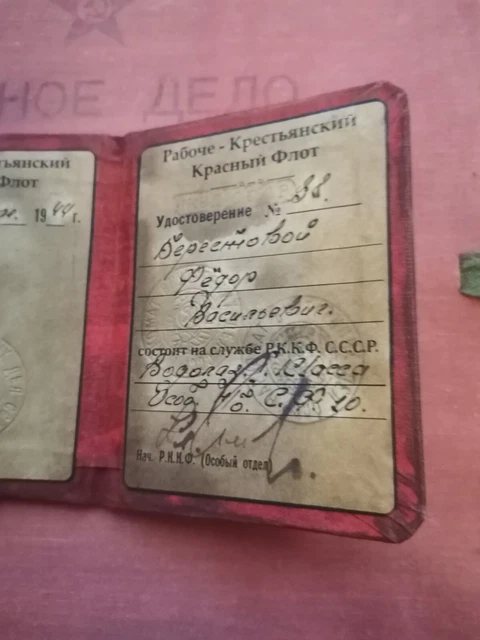 НОЕ ДЕЛО
тьянский
Флот
19 44 г.
Рабоче - Крестьянский
Красный Флот
Удостоверение № 38.
Берестовой
Фёдор
Васильевич.
состоит на службе Р.К.К.Ф. С.С.С.Р.
Водолаз класса
Особ. С. Ф.
Нач. Р.К.К.Ф. (Особый отдел)